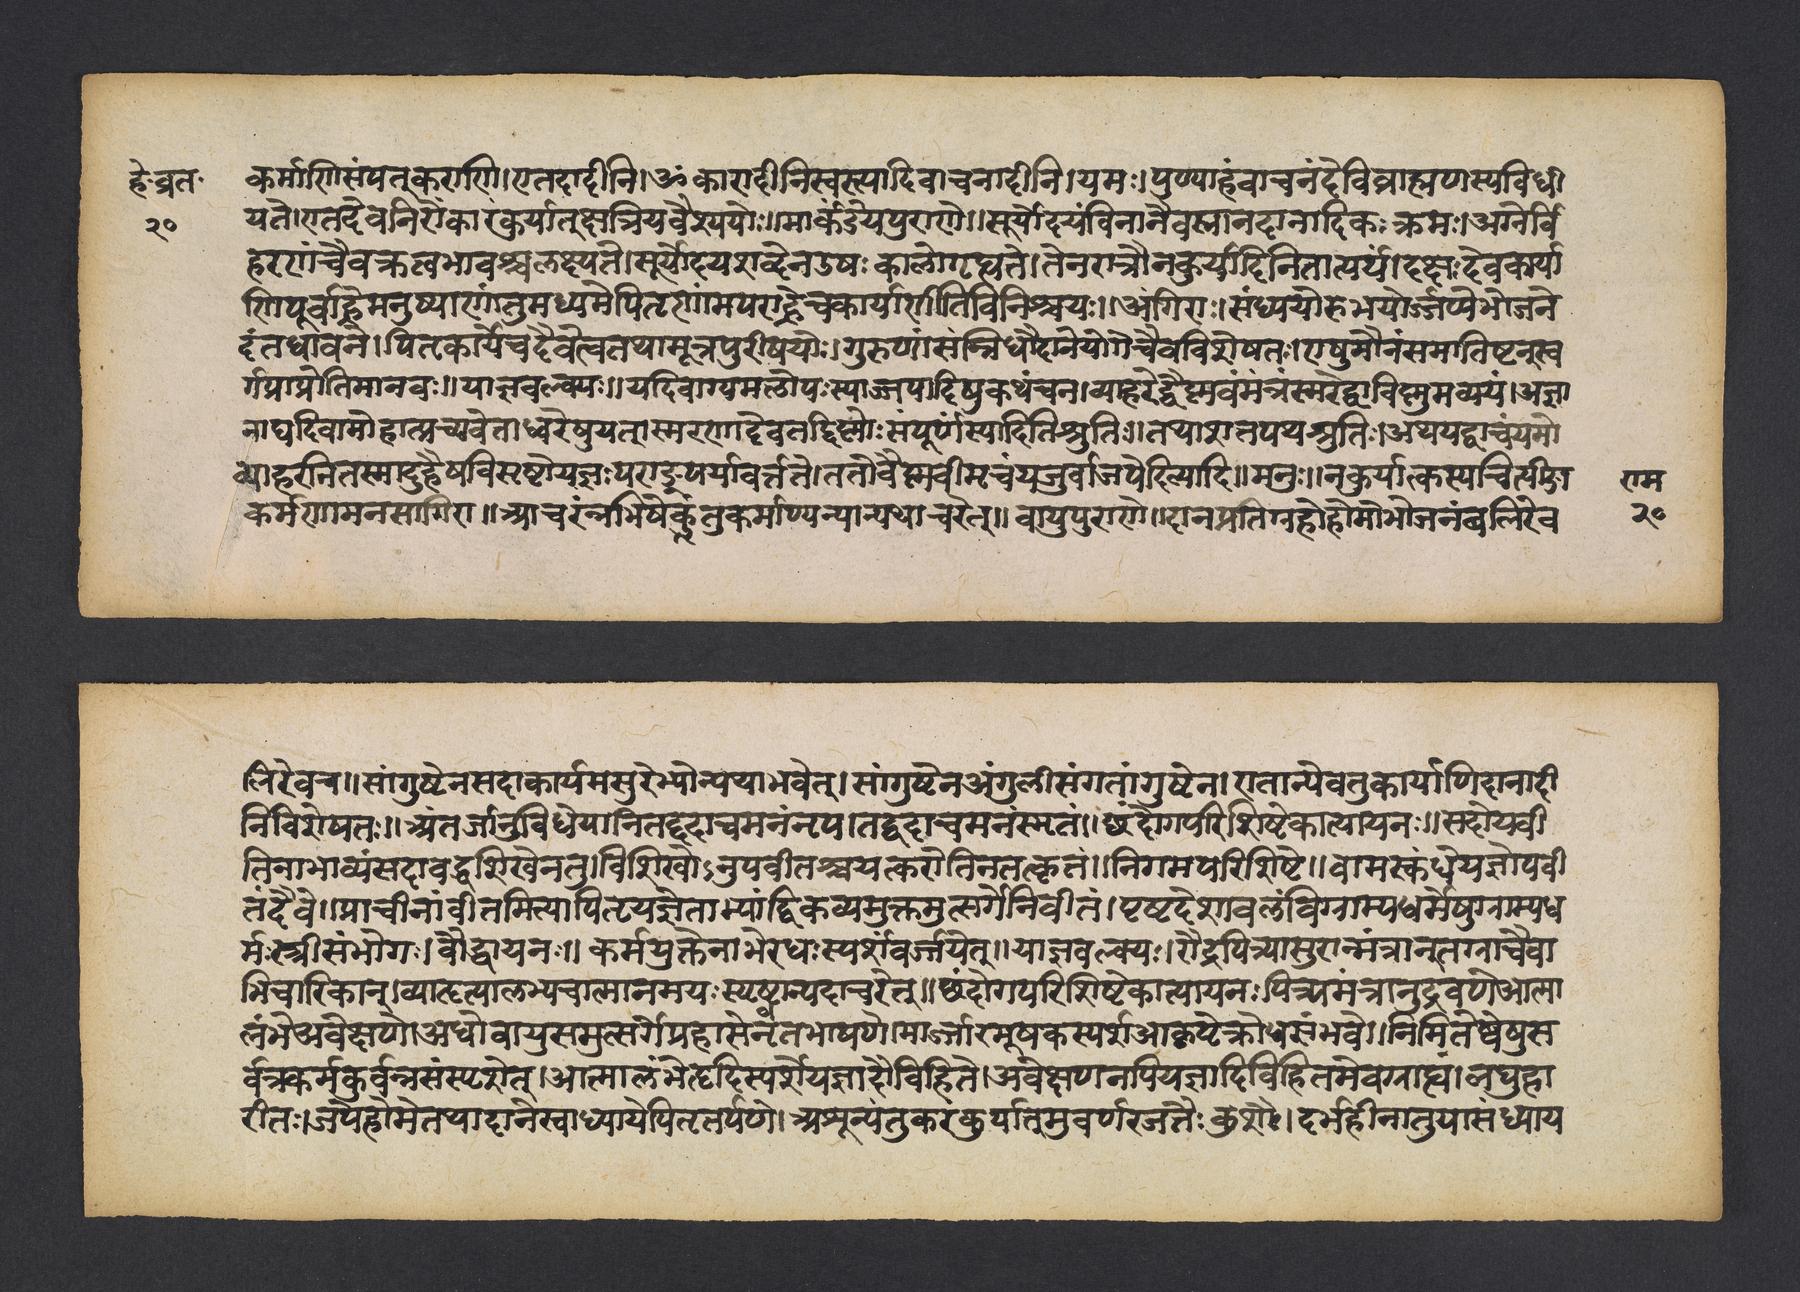 हे॰व्रत॰
२०
कर्माणिसंपत्कराणि।एतदादीनि।ॐकारादीनिस्वस्त्यादिवाचनादीनि।यमः।पुण्याहंवाचनंदैवेब्राह्मणस्यविधी
यते।एतदेवनिरोंकारंकुर्यात्क्षत्रियवैश्ययोः॥मार्कंडेयपुराणे॥सूर्योदयंविनानैवस्नानदानादिकःक्रमः।अग्नेर्वि
हरणंचैवक्रत्वभावश्चलक्ष्यते।सूर्योदयशब्देनउषःकालोगृह्यते।तेनरात्रौनकुर्यादिनितात्पर्यं।दक्षःदेवकार्या
णिपूर्वाह्णेमनुष्याणांतुमध्यमेपितॄणांमपराह्णेचकार्याणीतिविनिश्चयः॥अंगिराः।संध्ययोरुभयोर्ज्जप्येभोजने
दंतधावने।पितृकार्येचदैवेत्वतथामूत्रपुरीषयोः।गुरुणांसंन्निधौदानेयोगेचैवविशेषतः।एषुमौनंसमातिष्टन्स्व
र्गप्राप्नोतिमानवः॥याज्ञवल्क्यः॥यदिवाग्यमलोपःस्याज्जपादिषुकथंचन।व्याहरेद्वैष्णवंमंत्रंस्मरेद्वाविष्णुमव्ययं।अज्ञा
नाद्यदिवामोहात्प्रच्यवेताध्वरेषुयत्।स्मरणादेवतद्विष्णोःसंपूर्णंस्यादितिश्रुतिः।तथाशतपथश्रुतिः।अथयद्वाचंयमो
व्याहरनितस्मादुहैषविसृष्टोयज्ञःपराङ्पर्यावर्त्तते।ततोवैष्णवीमृचंयजुर्वाजपेदित्यादि॥मनुः॥नकुर्यात्कस्यचित्पीडां
कर्मणामनसागिरा॥आचरंन्नभिषेकंतुकर्माण्यन्यान्यथाचरेत्॥वायुपुराणे॥दानप्रतिग्रहोहोमोभोजनंबलिरेव
राम
२०
लिरेवच॥सांगुष्टेनसदाकार्यमसुरेभ्योन्यथाभवेत्।सांगुष्टेनअंगुलीसंगतांगुष्टेन।एतान्येवतुकार्याणिदानादी
निविशेषतः॥अंतर्जानुविधेयानितद्वदाचमनंनृप।तद्वदाचमनंस्मृतं॥छंदोगपरिशिष्टेकात्यायनः॥सदोपवी
तिनाभाव्यंसदाबद्धशिखेनतु।विशिखोऽनुपवीतश्चयत्करोतिनतत्कृतं॥निगमपरिशिष्टे॥वामस्कंधेयज्ञोपवी
तंदैवे॥प्राचीनांवीतमित्यापितृयज्ञेताभ्यांद्विकव्यमुक्तमुत्सर्गेनिवीतं।पृष्टदेशावलंविग्नाम्यधर्मेषुग्नाम्यध
र्मःस्त्रीसंभोगः।बौद्धायनः॥कर्मयुक्तेनाभेरधःस्पर्शंवर्ज्जयेत्॥याज्ञवल्क्यः।रौद्रपित्र्यासुरान्मंत्रान्तग्नाचैवा
भिचारिकान्।व्यादृत्यालभ्यचात्मानमयःस्पृष्ट्वान्यदाचरेत्॥छंदोगपरिशिष्टेकात्यायनःपित्र्यमंत्रानुद्रवणेआत्मा
लंभेअवेक्षणे।अधोवायुसमुत्सर्गेप्रहासेनृतभाषणे।मार्ज्जारमूषकस्पर्शआकृष्टेक्रोधसंभवे॥निमित्तेष्वेषुस
र्वत्रकर्मकुर्वन्नसंस्पृशेत्।आत्मालंभेहृदिस्पर्शेयज्ञादौविहिते।अवेक्षणनपियज्ञादिविहितमेवग्नाह्यं।लघुहा
रीतः।जपेहोमेतथादानेस्वाध्यायेपितृतर्पणे।अशून्यंतुकरंकुर्यात्सुवर्णरजतैःकुशैः।दर्भहीनातुयासंध्याय